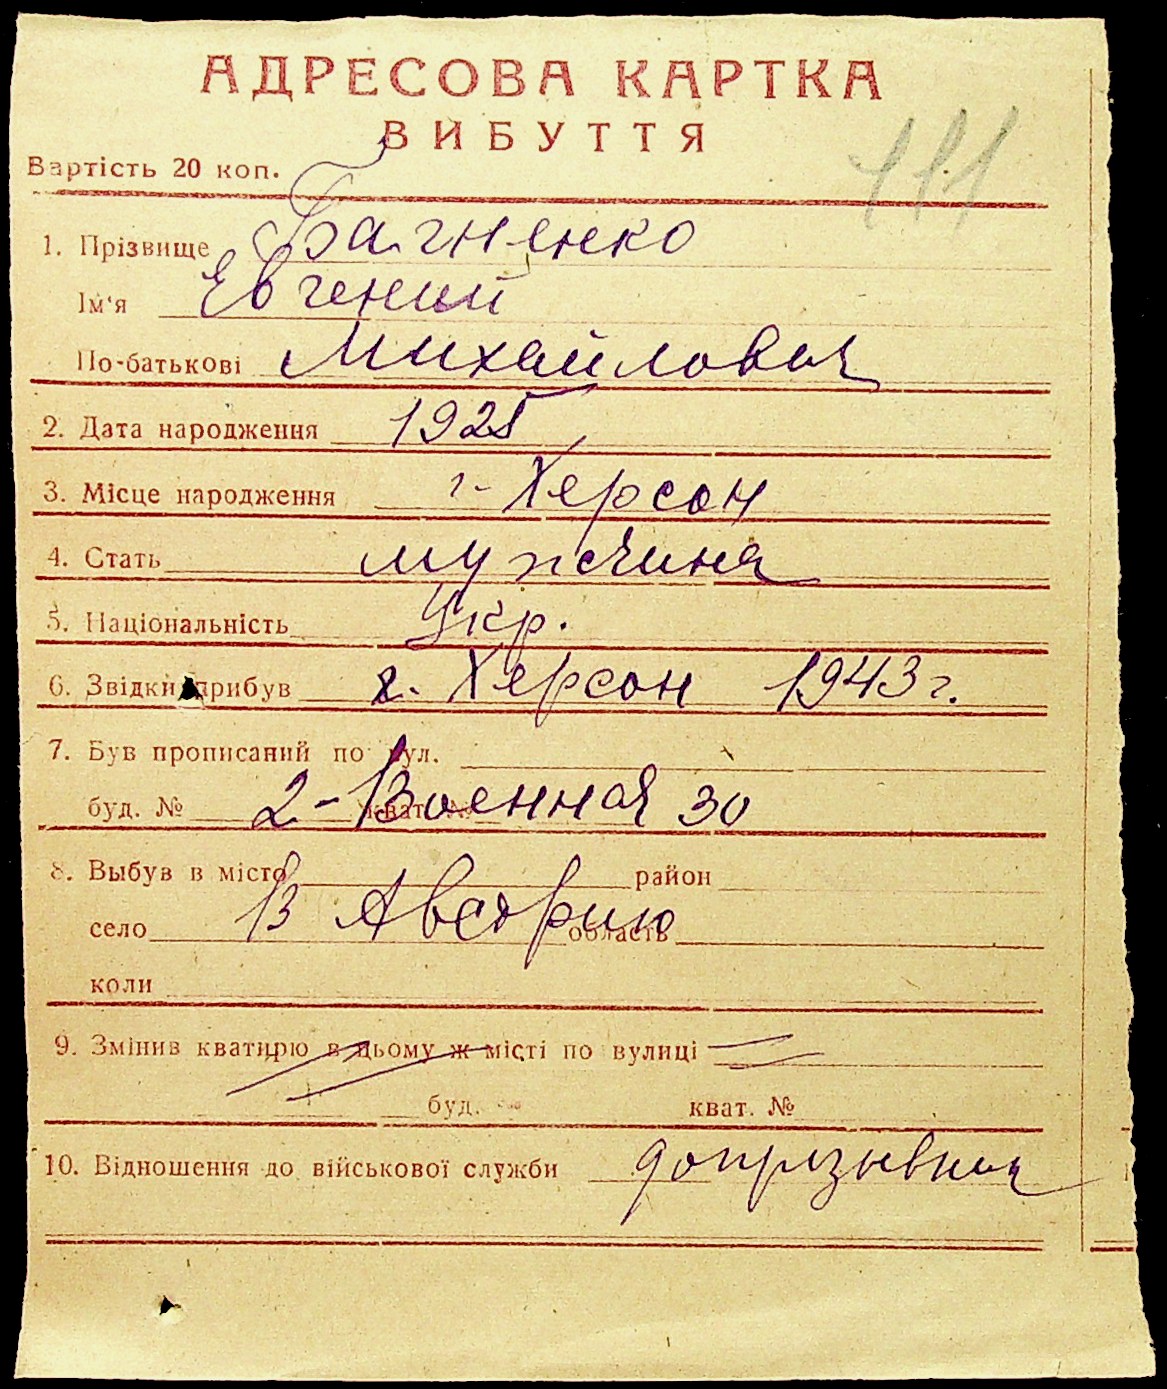 АДРЕСОВА КАРТКА
ВИБУТТЯ
Вартість 20 коп.
1. Прізвище Багненко
Ім'я Евгений
По-батькові Михайлович
2. Дата народження 1925
3. Місце народження г. Херсон
4. Стать мужчина
5. Національність Укр.
6. Звідки прибув г. Херсон 1943 г.
7. Був прописаний по вул.
буд. № кват. № 2-Военная 30
8. Выбув в місто район
село В Австрию область
коли
9. Змінив кватирю в цьому ж місті по вулиці
буд. кват. №
10. Відношення до військової служби допризывник